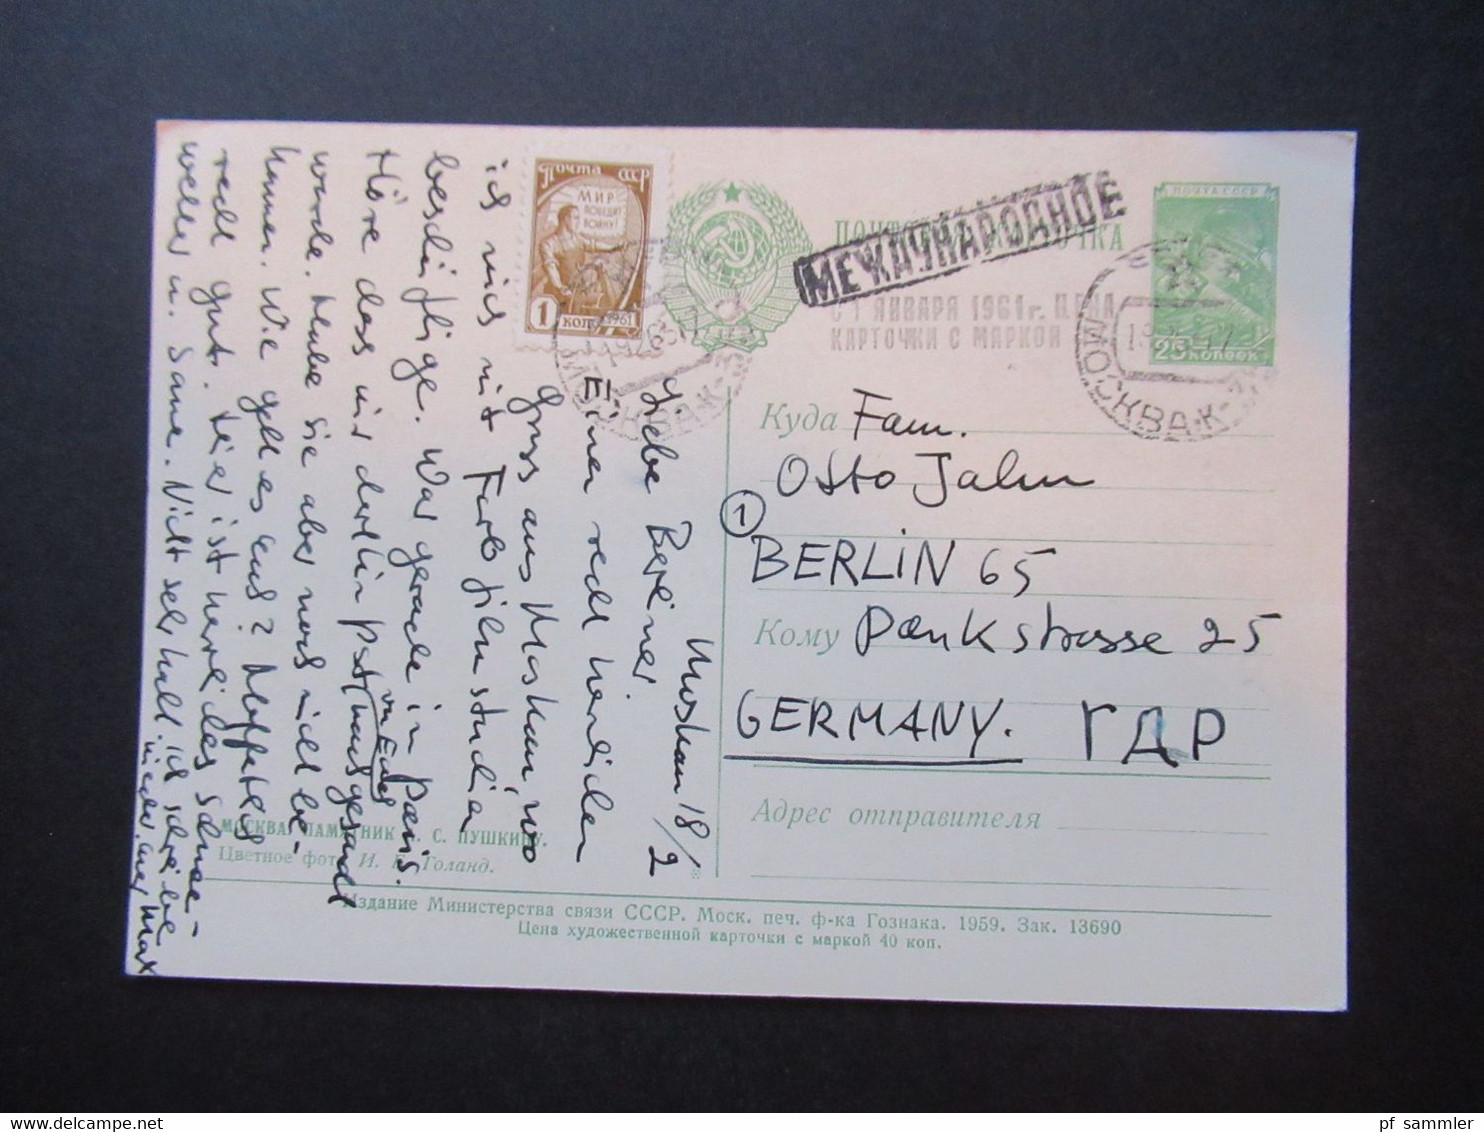 ПОЧТА СССР
МИР
ПОБЕДИТ
ВОЙНУ!
1 коп
1961
МЕЖДУНАРОДНОЕ
С 1 ЯНВАРЯ 1961 г. ЦЕНА
КАРТОЧКИ С МАРКОЙ
ПОЧТА СССР
25 КОПЕЕК
МОСКВА К-
МОСКВА К-
Куда Fam.
Otto Jahn
1
BERLIN 65
Кому Pankstrasse 25
GERMANY. ГДР
Адрес отправителя
Moskau 18/2
Liebe Berliner.
Einen recht herzlichen
Gruss aus Moskau, wo
ich mich mit Farbfilmstudien
beschäftige. War gerade in Paris.
Höre das mir dorthin Post
von Euch
nachgesandt
wurde. Habe sie aber noch nicht be-
kommen. Wie geht es Euch? Hoffentlich
recht gut. Hier ist herrliches Schnee-
wetter u. Sonne. Nicht sehr kalt. Ich schreibe
wieder, Euer Max
МОСКВА. ПАМЯТНИК А. С. ПУШКИНУ.
Цветное фото И. Б. Голанд.
Издание Министерства связи СССР. Моск. печ. ф-ка Гознака. 1959. Зак. 13690
Цена художественной карточки с маркой 40 коп.
pf_sammler